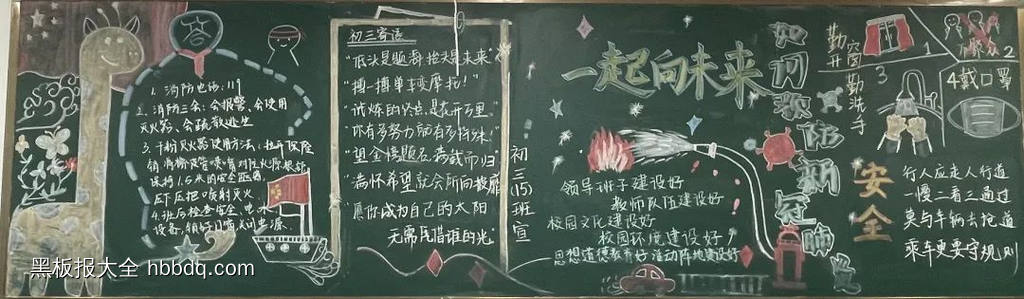 1. 消防电话:119
2. 消防三会:会报警、会使用
灭火器、会疏散逃生
3. 干粉灭火器使用方法:
保持1.5米的安全距离
压下压把喷射灭火
初三寄语
"低头是题海 抬头是未来"
"搏一搏 单车变摩托!"
"你有多努力 就有多特殊"
"望金榜题名 満载而归"
"满怀希望就会所向披靡"
"愿你成为自己的太阳
无需凭借谁的光"
初三(15)班宣
一起向未来
领导班子建设好
教师队伍建设好
校园文化建设好
校园环境建设好
思想道德教育好 活动阵地建设好
如何预防新冠肺炎
勤开窗
1
聚众 2
3
勤洗手
4戴口罩
安全
行人应走人行道
一慢二看三通过
莫与车辆去抢道
乘车更要守规则
黑板报大全 hbbdq.com